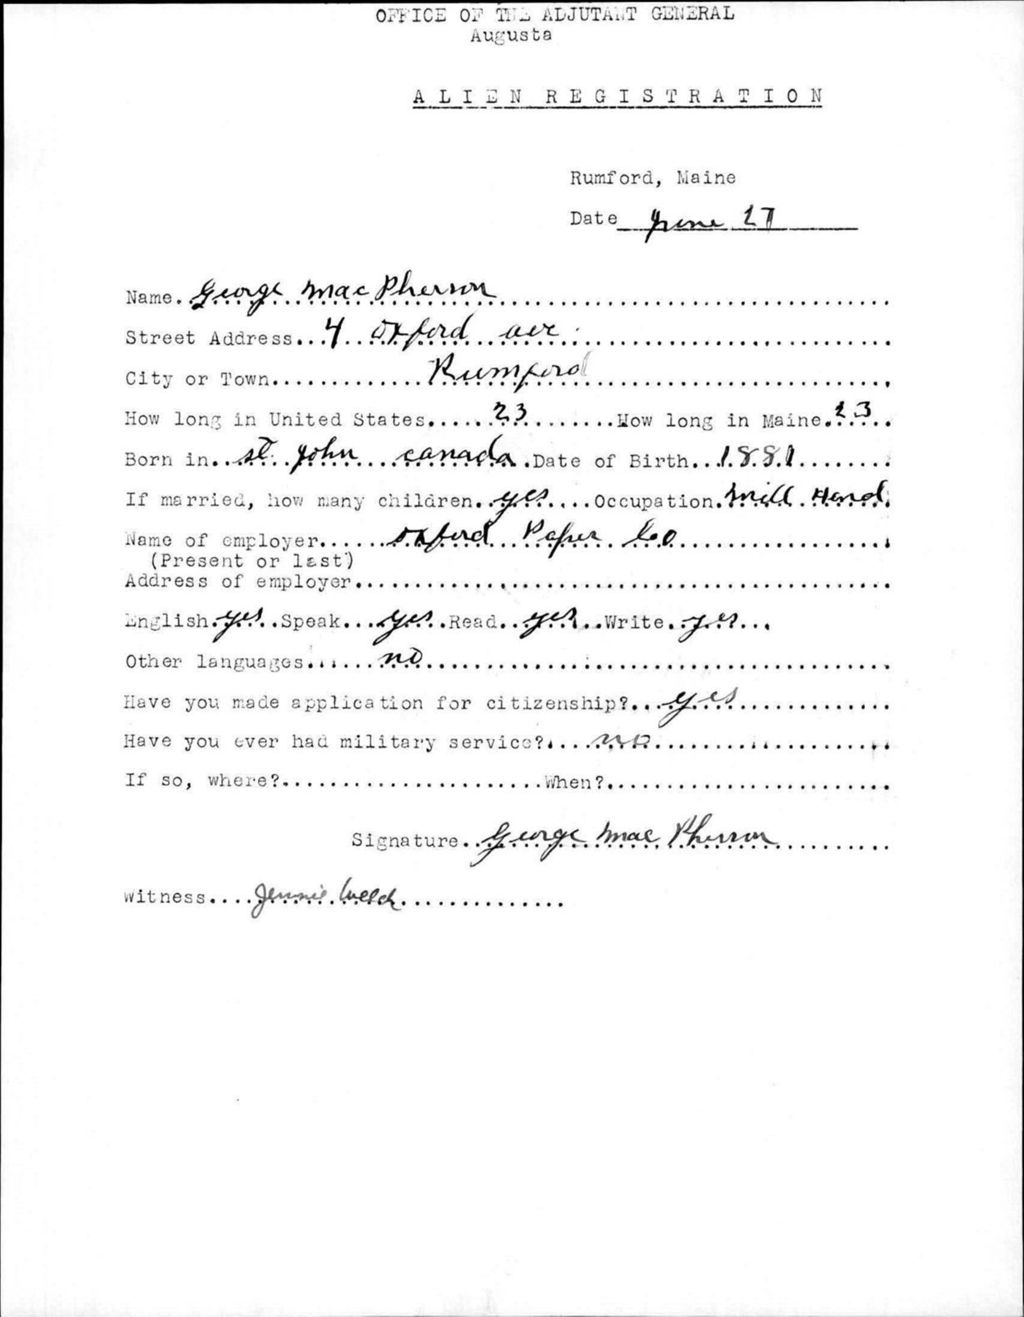 OFFICE OF THE ADJUTANT GENERAL
Augusta
ALIEN REGISTRATION
Rumford, Maine
Date June 27
Name. George MacPherson
Street Address... 4 Oxford ave.
City or Town... Rumford
How long in United States... 23 ...How long in Maine. 23
Born in.. St. John canada .Date of Birth... 1881
If married, how many children.. yes ....Occupation. Mill Hand
Name of employer... Oxford Paper Co
(Present or last)
Address of employer...
English. yes ..Speak... yes ..Read.. yes ...Write. yes ...
Other languages... no
Have you made application for citizenship?... yes
Have you ever had military service?... no
If so, where?...When?...
Signature.. George MacPherson
Witness.... Jennie Welch